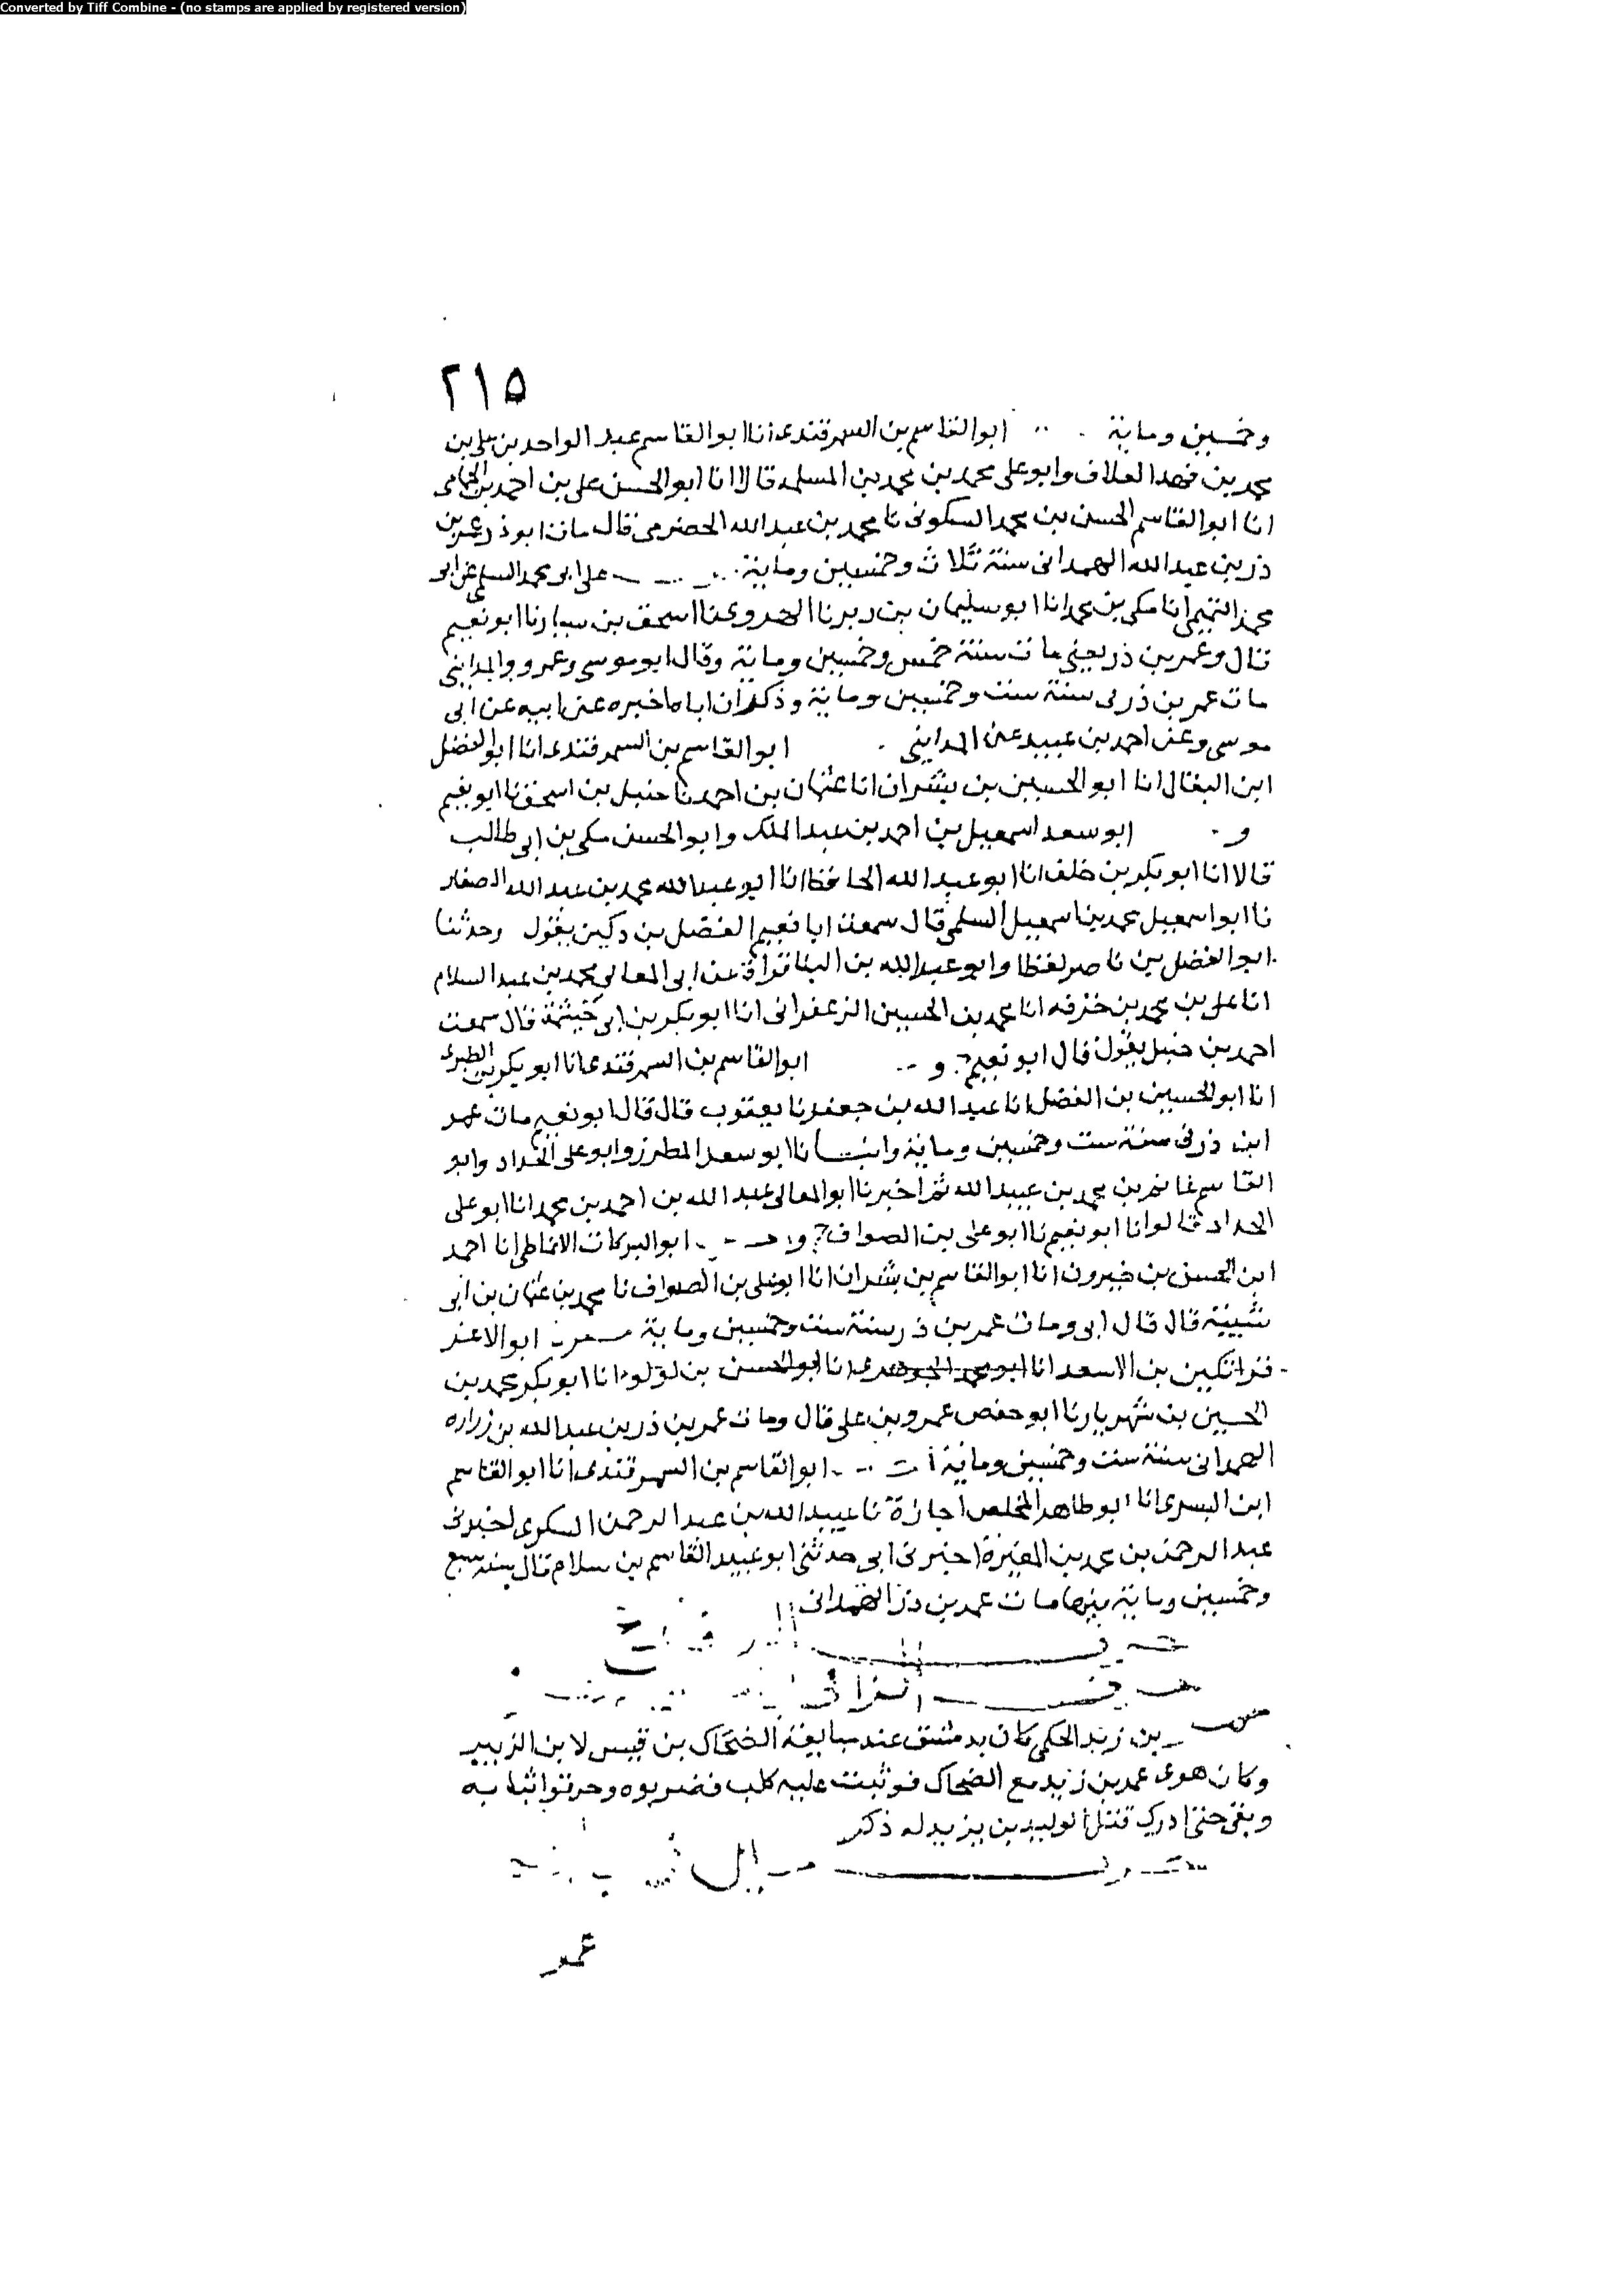 Converted by Tiff Combine - (no stamps are applied by registered version)
٢١٥
وخمسين وماية ابو القاسم بن السمرقندى انا ابو القاسم عبد الواحد بن على بن
محمد بن فهد العلاف وابو على محمد بن محمد بن المسلمة قالا انا ابو الحسن على بن احمد بن الحمامى
انا ابو القاسم الحسن بن محمد السكونى نا محمد بن عبد الله الحضرمى قال مات ابو ذر عمر بن
ذر بن عبد الله الهمدانى سنة ثلاث وخمسين وماية على ابو محمد السلمى عن ابو
محمد التميمى انا مكى بن محمد انا ابو سليمان بن زبر نا الهروى نا اسحق بن سيار نا ابو نعيم
قال وعمر بن ذر يعنى مات سنة خمس وخمسين وماية وقال ابو موسى وعمرو والمداينى
مات عمر بن ذر فى سنة ست وخمسين وماية وذكر ان اباه اخبره عن ابيه عن ابى
موسى وعن احمد بن عبيد عن المداينى ابو القاسم بن السمرقندى انا ابو الفضل
ابن البقال انا ابو الحسين بن بشران انا عثمان بن احمد نا حنبل بن اسحق نا ابو نعيم
و ابو سعد اسمعيل بن احمد بن عبد الملك وابو الحسن مكى بن ابى طالب
قالا انا ابو بكر بن خلف انا ابو عبد الله الحافظ انا ابو عبد الله محمد بن عبد الله الصفار
نا ابو اسمعيل محمد بن اسمعيل السلمى قال سمعت ابا نعيم الفضل بن دكين يقول وحدثنا
ابو الفضل بن ناصر لفظا وابو عبد الله بن البنا قراة عن ابى المعالى محمد بن عبد السلام
انا على بن محمد بن خزفه انا محمد بن الحسين الزعفرانى انا ابو بكر بن ابى خيثمة قال سمعت
احمد بن حنبل يقول قال ابو نعيم و ابو القاسم بن السمرقندى انا ابو بكر بن الطبرى
انا ابو الحسين بن الفضل انا عبد الله بن جعفر نا يعقوب قال قال ابو نعيم مات عمر
ابن ذر فى سنة ست وخمسين وماية وانبـانا ابو سعد المطرز وابو على الحداد وابو
القاسم غانم بن محمد بن عبيد الله ثم اخبرنا ابو المعالى عبد الله بن احمد بن محمد انا ابو على
الحداد قالوا انا ابو نعيم نا ابو على بن الصواف و ابو البركات الانماطى انا احمد
ابن الحسن بن خيرون انا ابو القاسم بن بشران انا ابو على بن الصواف نا محمد بن عثمان بن ابى
شيبة قال قال ابى ومات عمر بن ذر سنة ست وخمسين وماية ابو الاعز
قراتكين بن الاسعد انا ابو محمد الجوهرى انا ابو الحسن بن لؤلؤ انا ابو بكر محمد بن
الحسين بن شهريار نا ابو حفص عمرو بن على قال ومات عمر بن ذر بن عبد الله بن زراره
الهمدانى سنة ست وخمسين وماية ابو القاسم بن السمرقندى انا ابو القاسم
ابن البسرى انا ابو طاهر المخلص اجازة نا عبيد الله بن عبد الرحمن السكرى اخبرنى
عبد الرحمن بن محمد بن المغيرة اخبرنى ابى حدثنى ابو عبيد القاسم بن سلام قال سنة سبع
وخمسين وماية فيها مات عمر بن ذر الهمدانى
بن زيد الحكمى كان بدمشق عند مبايعة الضحاك بن قيس لابن الزبير
وكان هوى عمر بن زيد مع الضحاك فوثبت عليه كلب فضربوه وحرقوا ثيابه
وبقى حتى ادرك قتل الوليد بن يزيد له ذكر
عمر